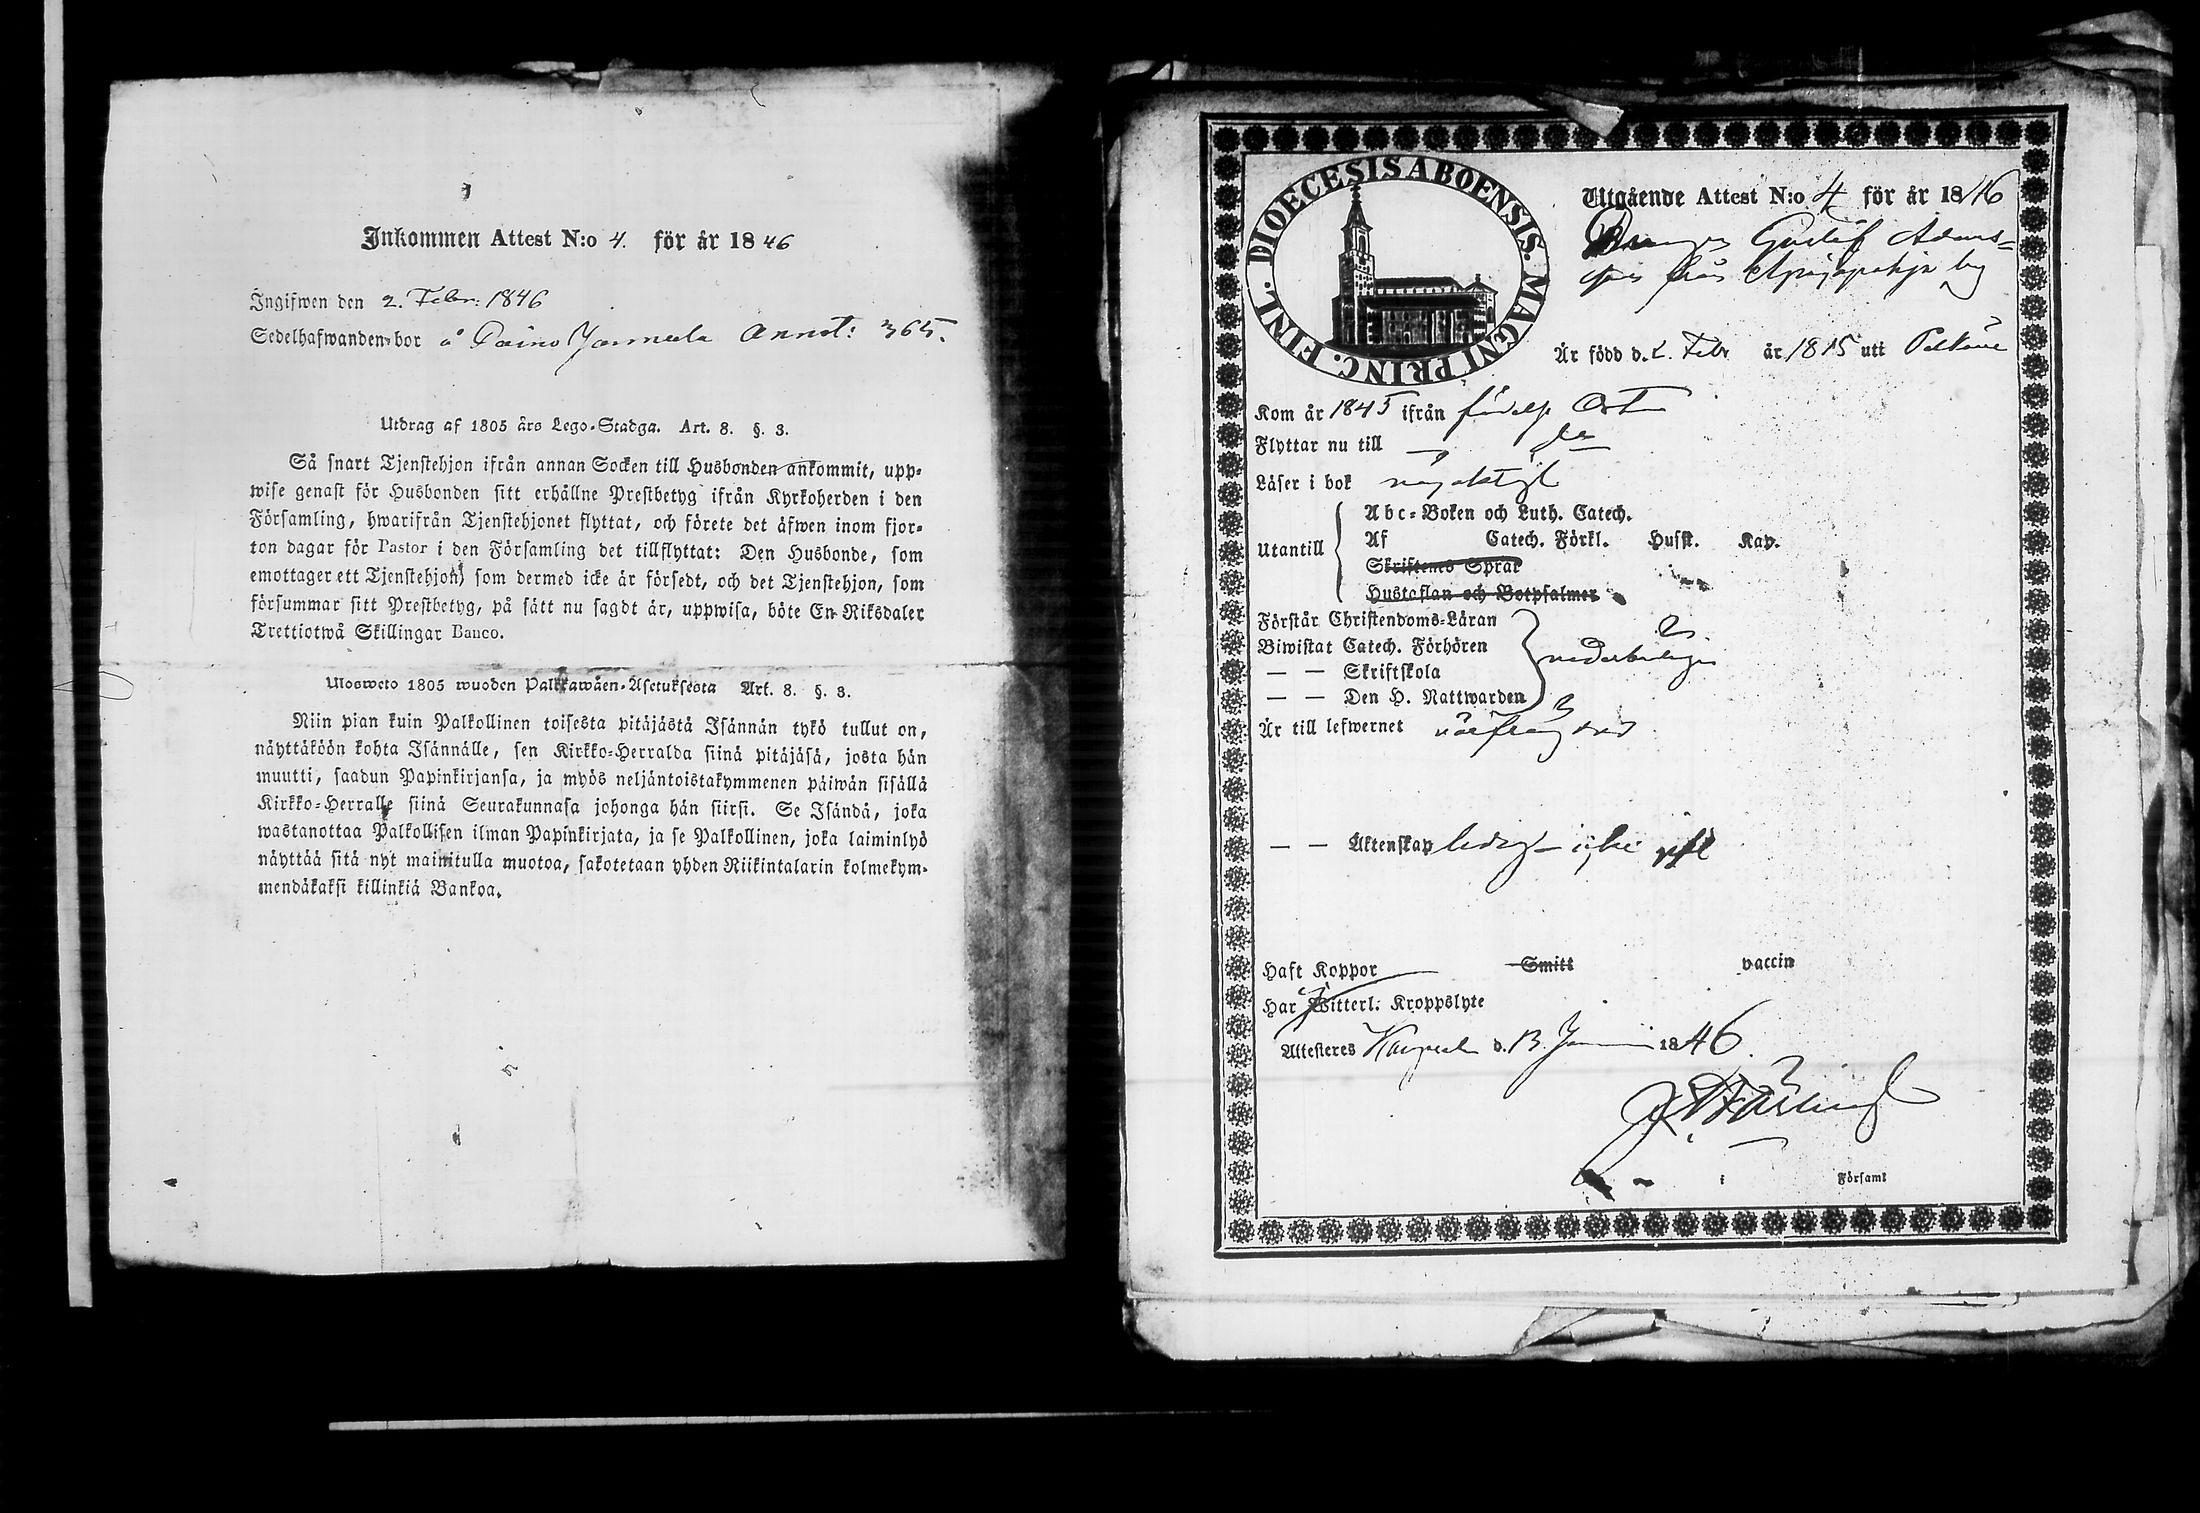 Inkommen Attest N:o 4. för år 1846
Ingifwen den 2. Febr: 1846
Sedelhafwanden bor å Paino Jamerla Annot: 365.
Utdrag af 1805 års Lego-Stadga. Art. 8. §. 3.
Så snart Tjenstehjon ifrån annan Socken till Husbonden ankommit, upp-
wise genast för Husbonden sitt erhållne Prestbetyg ifrån Kyrkoherden i den
Församling, hwarifrån Tjenstehjonet flyttat, och förete det äfwen inom fjor-
ton dagar för Pastor i den Församling det tillflyttat: Den Husbonde, som
emottager ett Tjenstehjon, som dermed icke är försedt, och det Tjenstehjon, som
försummar sitt Prestbetyg, på sätt nu sagdt är, uppwisa, böte En Riksdaler
Trettiotwå Skillingar Banco.
Ulosweto 1805 wuoden Palkkawäen-Asetuksesta Art. 8. §. 3.
Niin pian kuin Palkollinen toisesta pitäjästä Isännän tykö tullut on,
näyttäköön kohta Isännälle, sen Kirkko-Herralda siinä pitäjäsä, josta hän
muutti, saadun Papinkirjansa, ja myös neljäntoistakymmenen päiwän sisällä
Kirkko-Herralle siinä Seurakunnasa johonga hän siirsi. Se Isändä, joka
wastanottaa Palkollisen ilman Papinkirjata, ja se Palkollinen, joka laiminlyö
näyttää sitä nyt mainitulla muotoa, sakotetaan yhden Riikintalarin kolmekym-
mendäkaksi killinkiä Bankoa.
DIOECESIS ABOENSIS. MAGNI PRINC. FINL.
Utgående Attest N:o 4 för år 1846
Drengen Gustaf Adams-
son från by
Är född d. 2. Febr år 1815 uti Pelkäne
Kom år 1845 ifrån födelse Orten
Flyttar nu till — do
Läser i bok nöjaktigt
Abc-Boken och Luth. Catech.
Utantill Af Catech. Förkl. Husft. Kap.
Skriftenes Sprak
Hustaflan och Botpsalmer
Förstår Christendoms-Läran
Biwistat Catech. Förhören
— — Skriftskola
— — Den H. Nattwarden
vederbörligen
Är till lefwernet oförbrytlig
— — Äktenskap ledig
Haft Koppor Smitt vaccin
Har ej Witterl. Kroppslyte
Attesteres d. 13. Januarii 1846.
i Församl